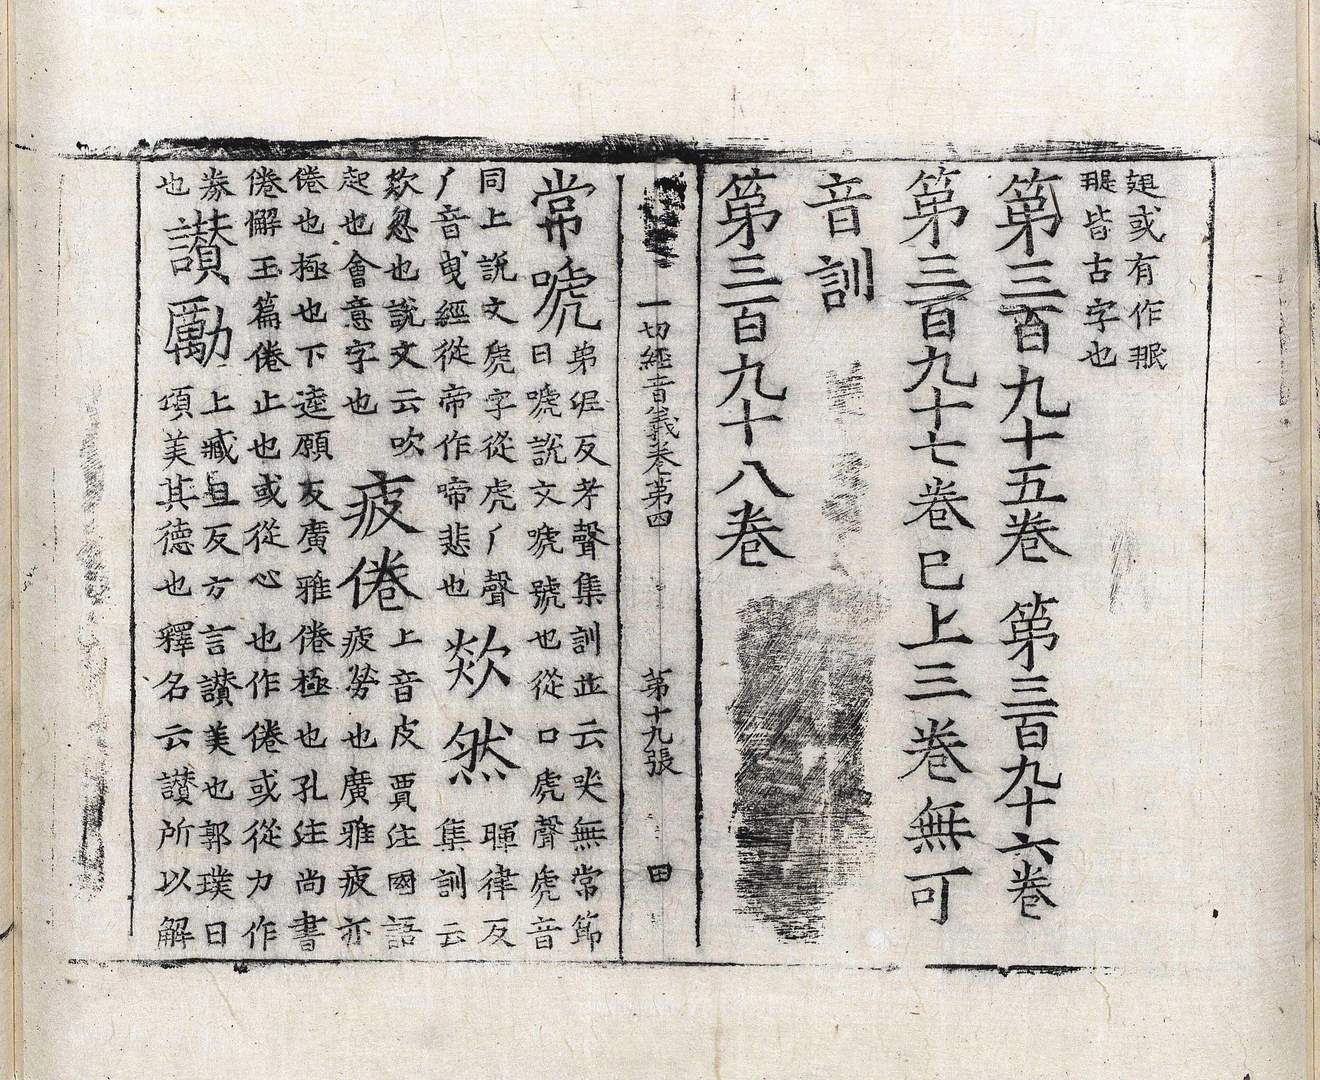 𦖠或有作䀼
䀼皆古字也
第三百九十五卷 第三百九十六卷
第三百九十七卷巳上三卷無可
音訓
第三百九十八卷
一切經音義卷第四 第十九張 田
常嗁
弟泥反考聲集訓並云哭無常節
曰嗁說文嗁號也從口虒聲虒音
同上說文虒字從虎𠂆聲
𠂆音曳經從帝作啼悲也
欻然
暉律反
集訓云
欻忽也說文云吹
起也會意字也
疲倦
上音皮賈注國語
疲勞也廣雅疲亦
倦也極也下逵願反廣雅倦極也孔注尚書
倦懈玉篇倦止也或從心 也作倦或從力作
券
也
讃勵
上臧且反方言讃美也郭璞曰
項美其德也釋名云讃所以解